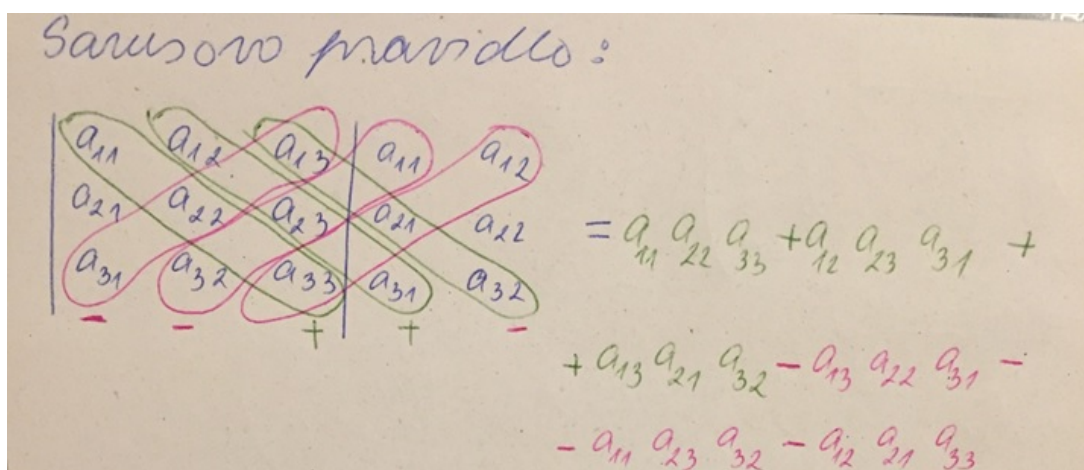 Sarusovo pravidlo:
| a₁₁ a₁₂ a₁₃ | a₁₁ a₁₂
a₂₁ a₂₂ a₂₃ | a₂₁ a₂₂ = a₁₁ a₂₂ a₃₃ + a₁₂ a₂₃ a₃₁ +
a₃₁ a₃₂ a₃₃ | a₃₁ a₃₂
− − + + −
+ a₁₃ a₂₁ a₃₂ − a₁₃ a₂₂ a₃₁ −
− a₁₁ a₂₃ a₃₂ − a₁₂ a₂₁ a₃₃